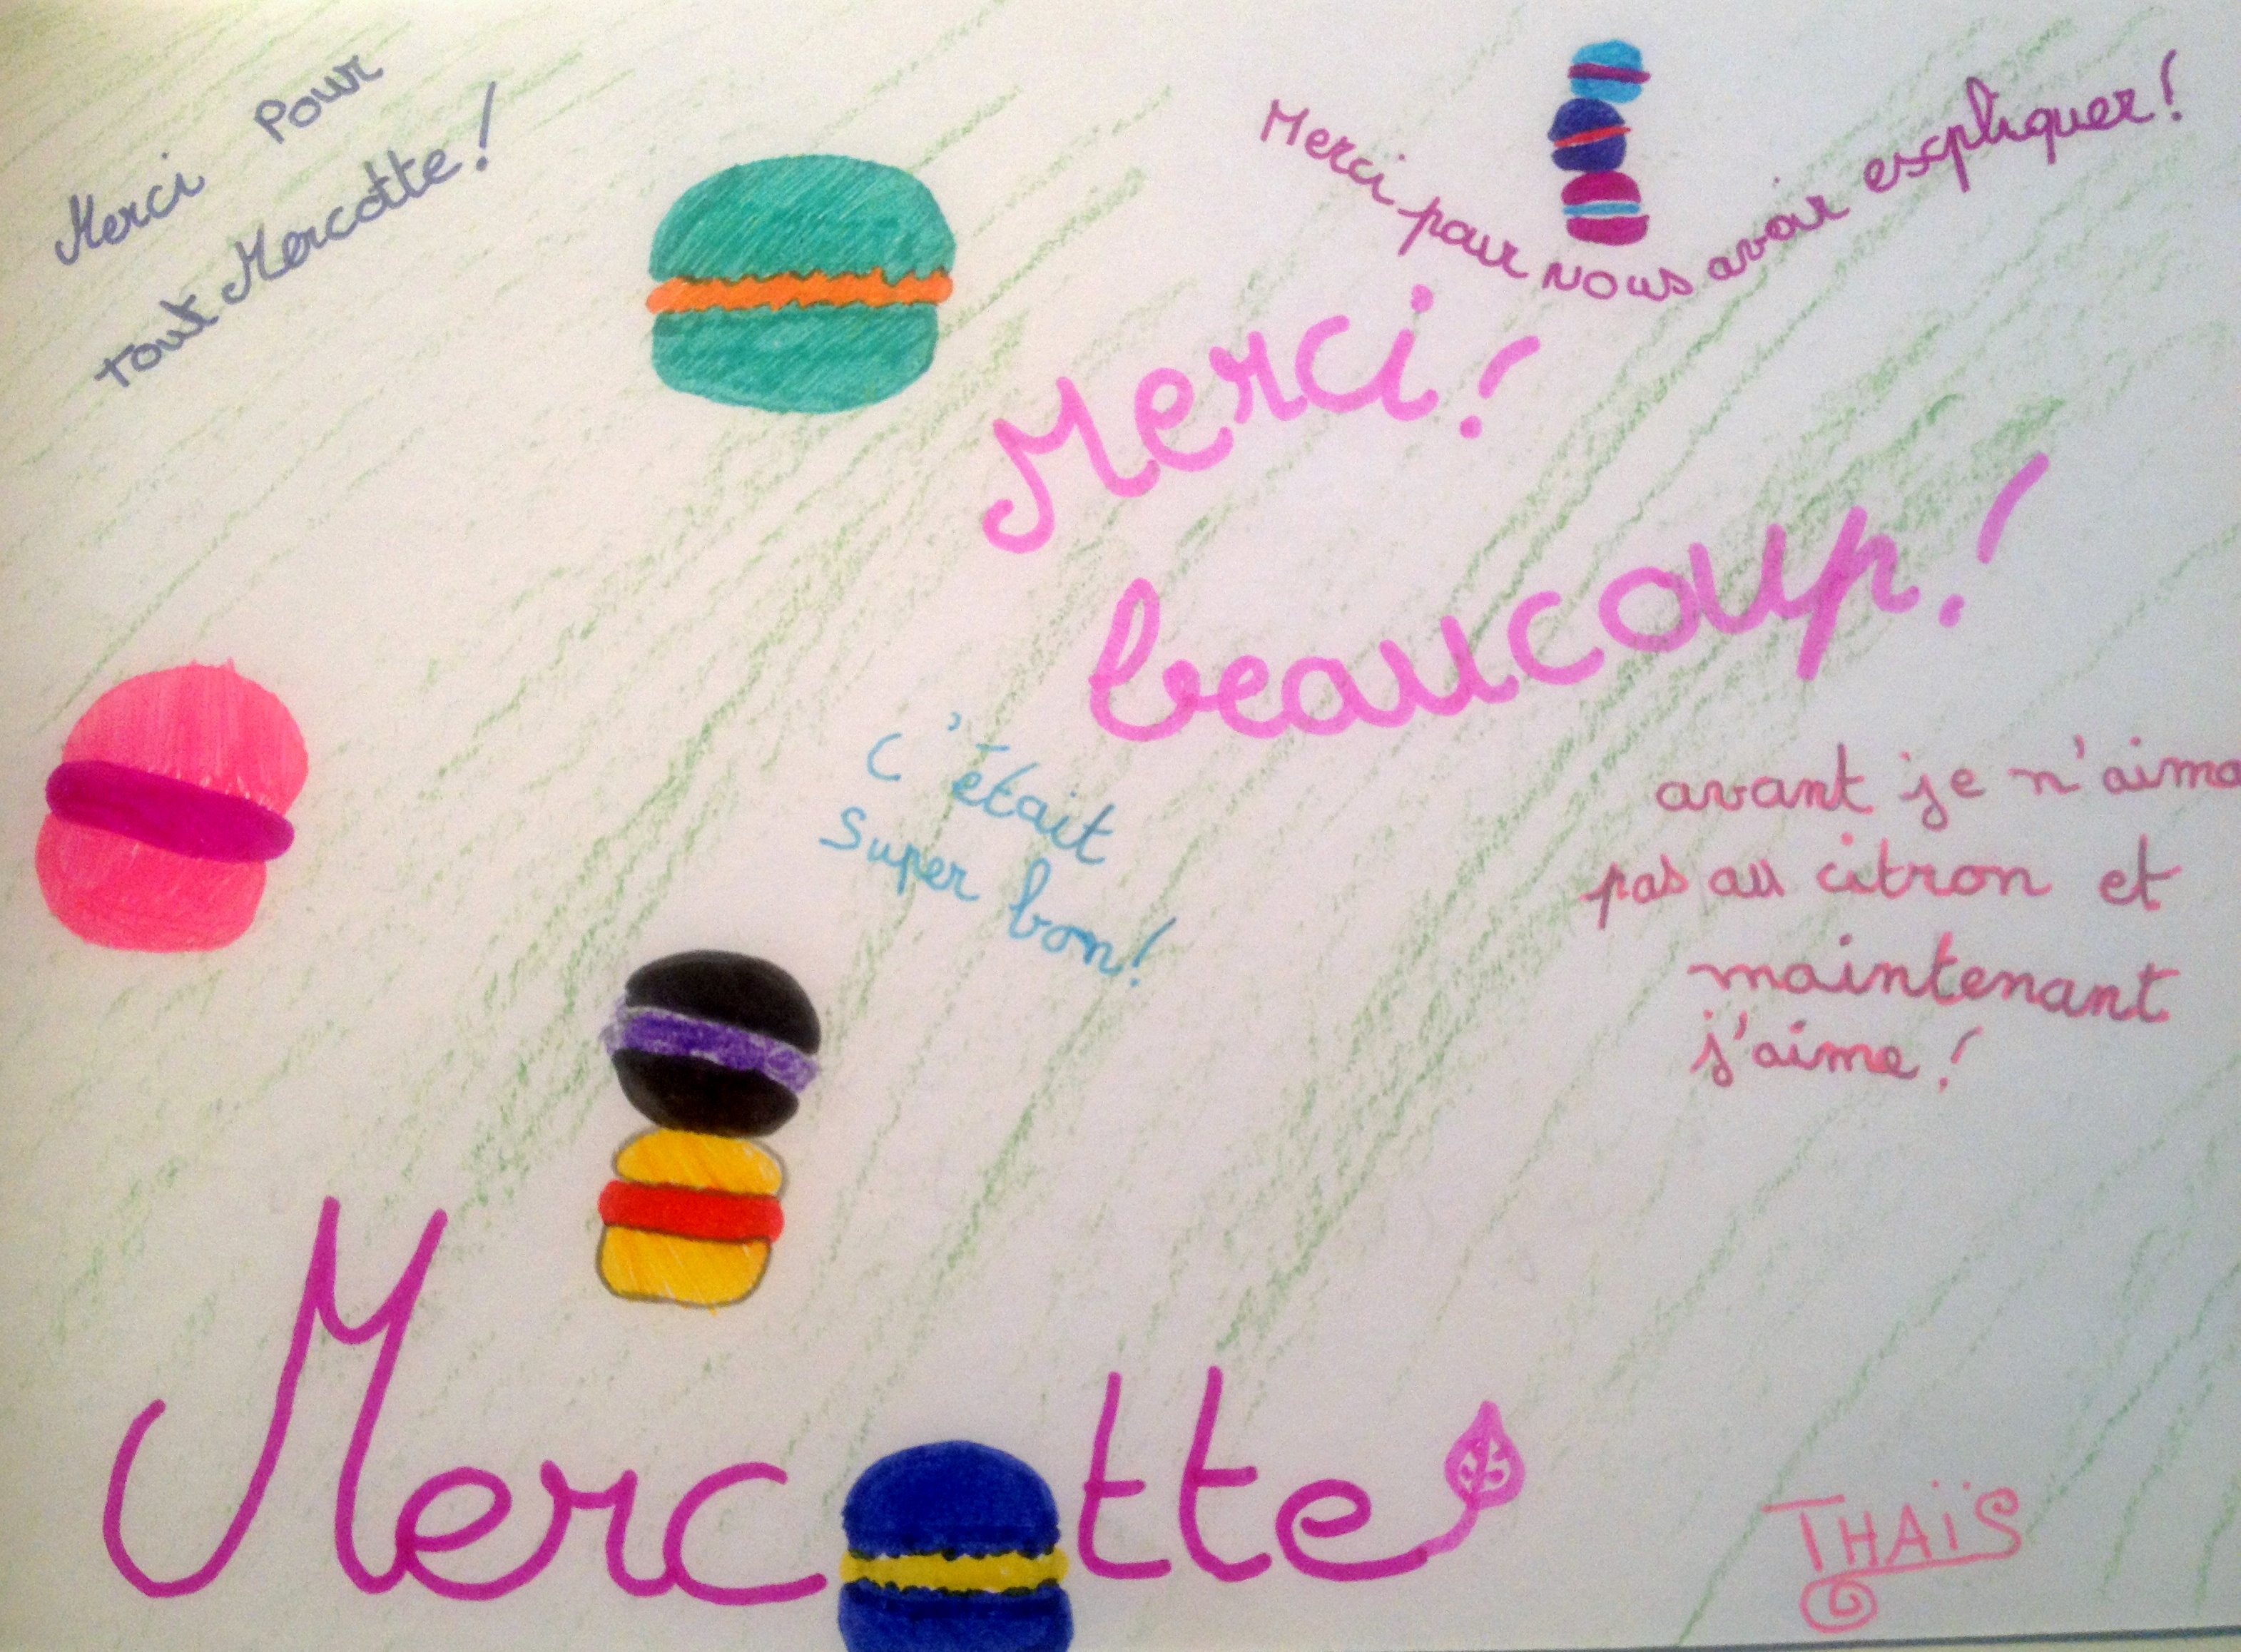 Merci pour
tout Mercotte!
Merci pour nous avoir escpliquer!
Merci!
beaucoup!
C'était
super bon!
avant je n'aima
pas au citron et
maintenant
j'aime!
Mercotte
THAÏS